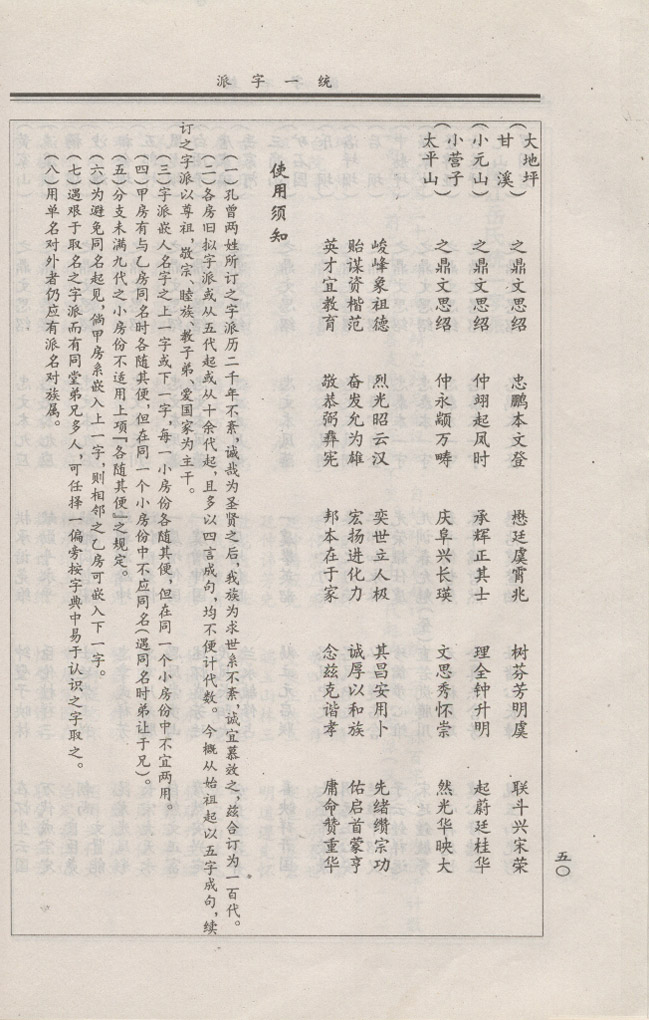 统一字派
五〇
（大地坪 之鼎文思绍 忠鹏本文登 懋廷虞霄兆 树芬芳明虞 联斗兴宋荣
甘溪）
（小元山） 之鼎文思绍 仲翊起凤时 承辉正其士 理全钟升明 起蔚廷桂华
（小营子
太平山） 之鼎文思绍 仲永颛万畴 庆阜兴长瑛 文思秀怀崇 然光华映大
峻峰象祖德 烈光昭云汉 奕世立人极 其昌安用卜 先绪缵宗功
贻谋资楷范 奋发允为雄 宏扬进化力 诚厚以和族 佑启首蒙亨
英才宜教育 敬恭弼彝宪 邦本在于家 念兹克谐孝 庸命赞重华
使用须知
（一）孔曾两姓所订之字派历二千年不紊，诚哉为圣贤之后，我族为求世系不紊，诚宜慕效之，兹合订为一百代。
（二）各房旧拟字派或从五代起或从十余代起，且多以四言成句，均不便计代数。今概从始祖起以五字成句，续
订之字派以尊祖，敬宗、睦族、教子弟、爱国家为主干。
（三）字派嵌人名字之上一字或下一字，每一小房份各随其便，但在同一个小房份中不宜两用。
（四）甲房有与乙房同名时各随其便，但在同一个小房份中不应同名（遇同名时弟让于兄）。
（五）分支未满九代之小房份不适用上项『各随其便』之规定。
（六）为避免同名起见，倘甲房系嵌入上一字，则相邻之乙房可嵌入下一字。
（七）遇艰于取名之字派而有同堂弟兄多人，可任择一偏旁按字典中易于认识之字取之。
（八）用单名对外者仍应有派名对族属。